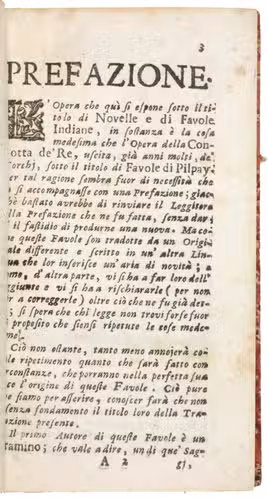 3
PREFAZIONE.
L'Opera che quì si espone sotto il ti-
tolo di Novelle e di Favole
Indiane, in sostanza è la cosa
medesima che l'Opera della Con-
otta de' Re, uscita, già anni molti, de'
orchj, sotto il titolo di Favole di Pilpay.
er tal ragione sembra fuor di necessità che
si accompagnasse con una Prefazione; giac-
bè bastato avrebbe di rinviare il Leggitore
lla Prefazione che ne fu fatta, senza dar
il fastidio di produrne una nuova. Ma co-
e queste Favole son tradotte da un Origi-
ale differente e scritto in un' altra Lin-
ua che lor inserisce un'aria di novità; e
ome, d'altra parte, vi si ha a far loro dell'
ggiunte e vi si ha a rischiararle (per non
er a correggerle) oltre ciò che ne fu già det-
; si spera che chi legge non trovi forse fuor
proposito che siensi ripetute le cose mede-
me.
Ciò non ostante, tanto meno annojerà co-
le ripetimento quanto che sarà fatto con
rconstanze, che porranno nella perfetta sua
ce l'origine di queste Favole. Ciò pure
e siamo per asserire, conoscer farà che non
senza fondamento il titolo loro della Tra-
zione presente.
Il primo Autore di queste Favole è un
ramino; che vale a dire, un di que' Sag-
A 2 gj,